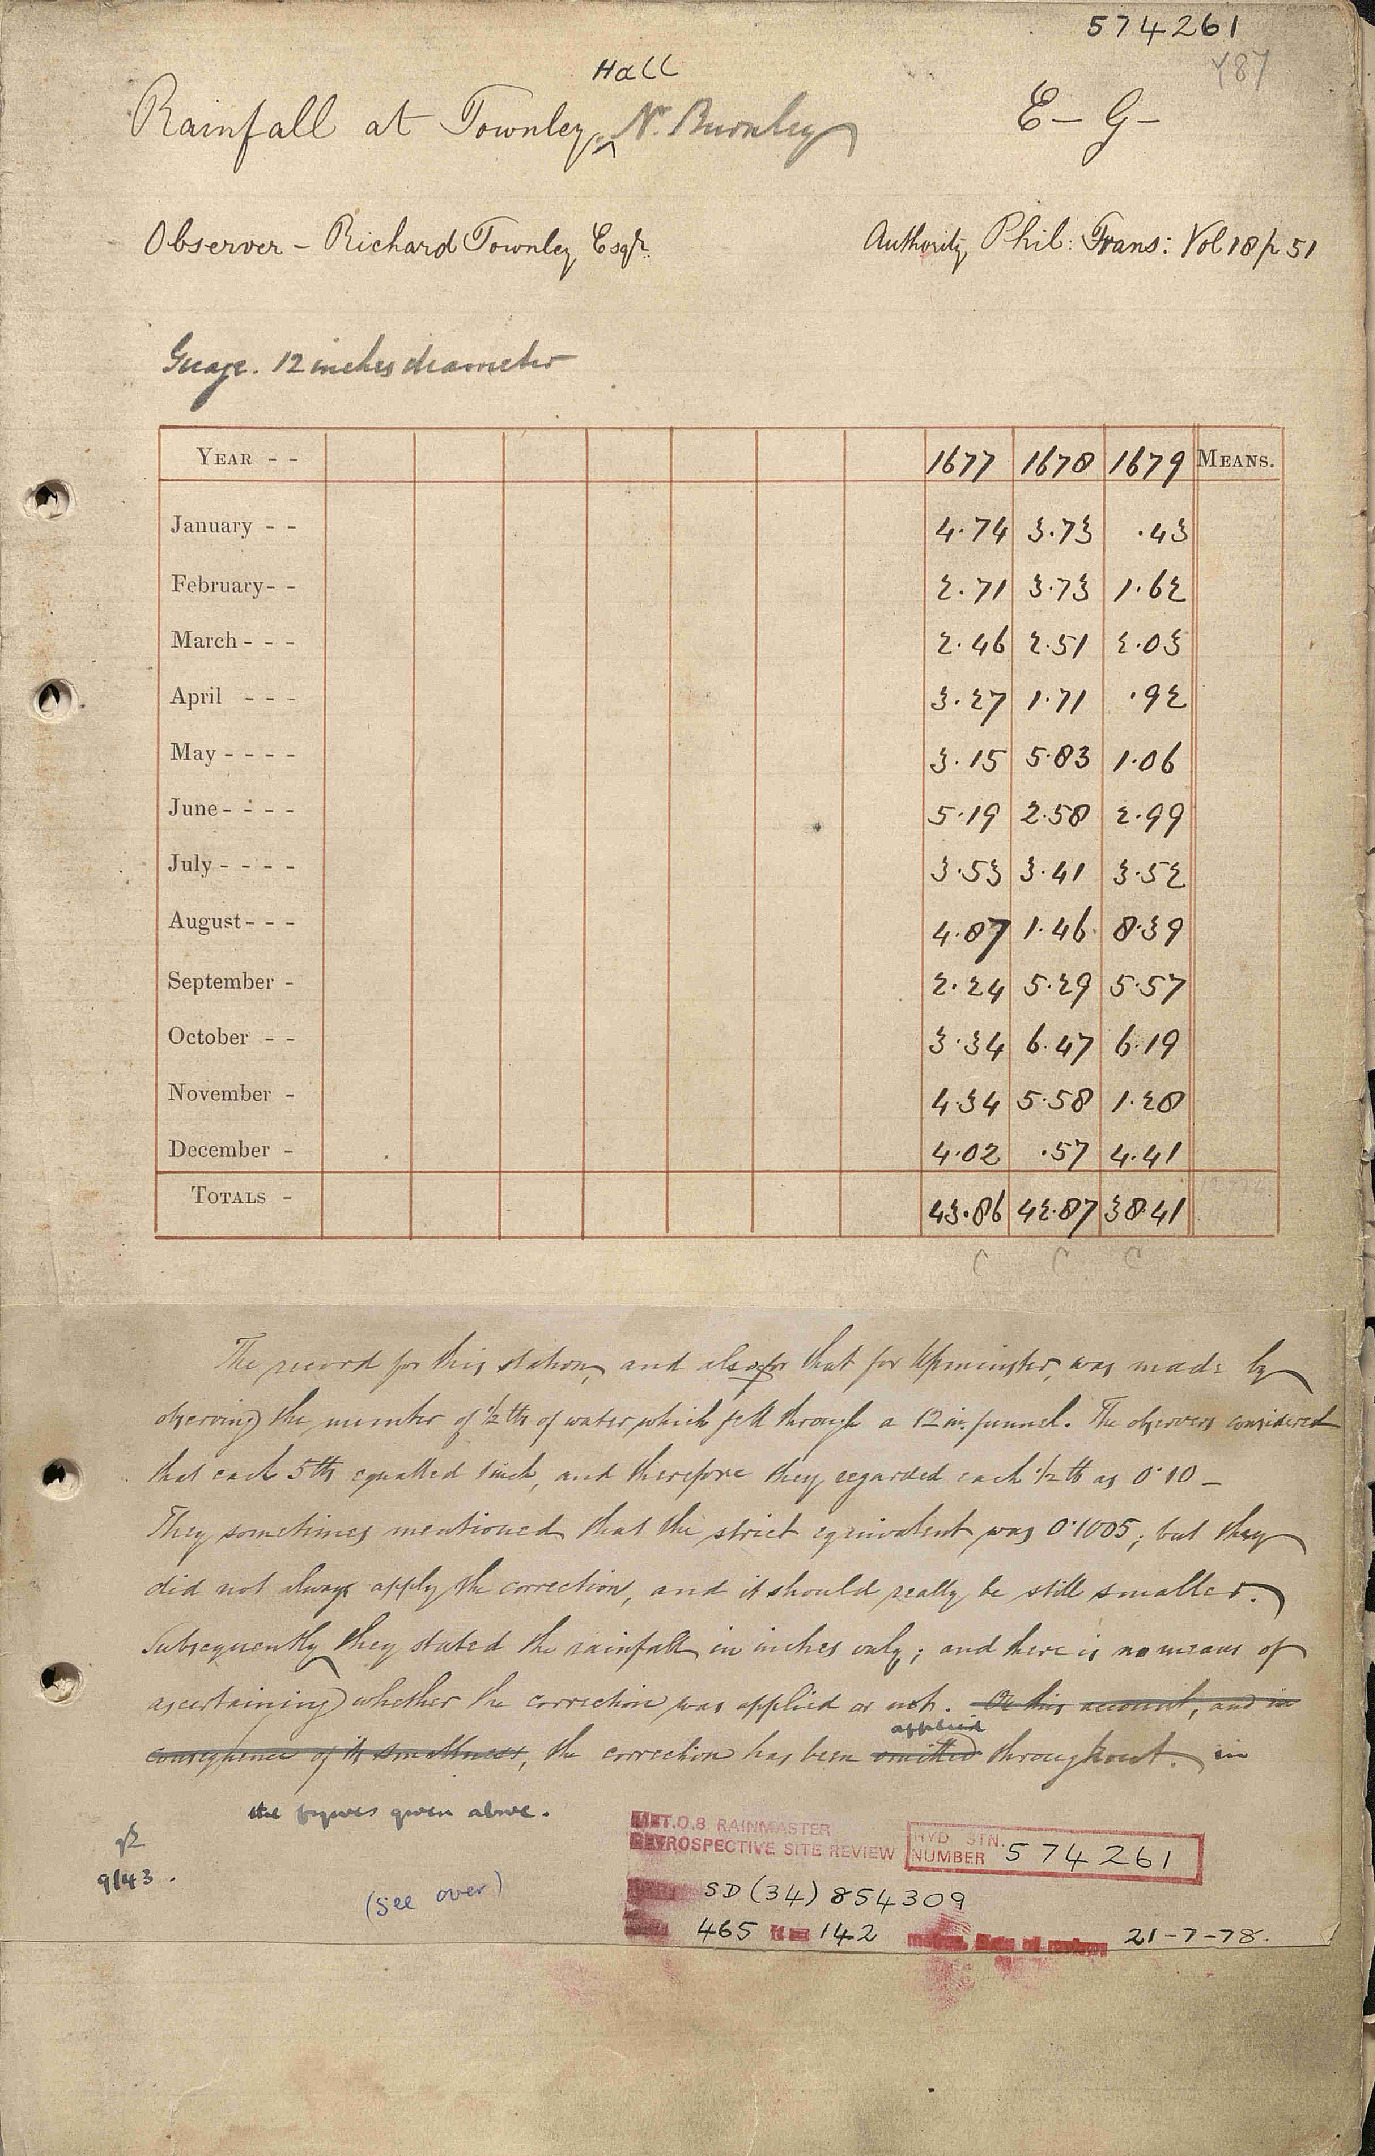 574261
487
Hall
Rainfall at Townley, Nr. Burnley
E - G -
Observer - Richard Townley Esqr.
Authority, Phil: Trans: Vol 18 p 51
Guage. 12 inches diameter
YEAR - - 1677 1678 1679 MEANS.
January - - 4.74 3.73 .43
February - - 2.71 3.73 1.62
March - - - 2.46 2.51 2.03
April - - - 3.27 1.71 .92
May - - - - 3.15 5.83 1.06
June - - - - 5.19 2.58 2.99
July - - - - 3.53 3.41 3.52
August - - - 4.87 1.46 8.39
September - 2.24 5.29 5.57
October - - 3.34 6.47 6.19
November - 4.34 5.58 1.28
December - 4.02 .57 4.41
TOTALS - 43.86 42.87 38.41
C C C
The record for this station, and also for that for Upminster, was made by
observing the number of ½ lbs of water which fell through a 12 in. funnel. The observers considered
that each 5 lbs equalled 1 inch, and therefore they regarded each ½ lb as 0.10 -
They sometimes mentioned that the strict equivalent was 0.1005; but they
did not always apply the correction, and it should really be still smaller.
Subsequently they stated the rainfall in inches only; and there is no means of
ascertaining whether the correction was applied or not. On this account, and in
applied
consequence of its smallness, the correction has been omitted throughout. in
the figures given above.
9/43.
(see over)
MET.O.8 RAINMASTER
RETROSPECTIVE SITE REVIEW
HYD STN. NUMBER 574261
SD (34) 854309
465 ft 142 metres. Date of review 21-7-78.